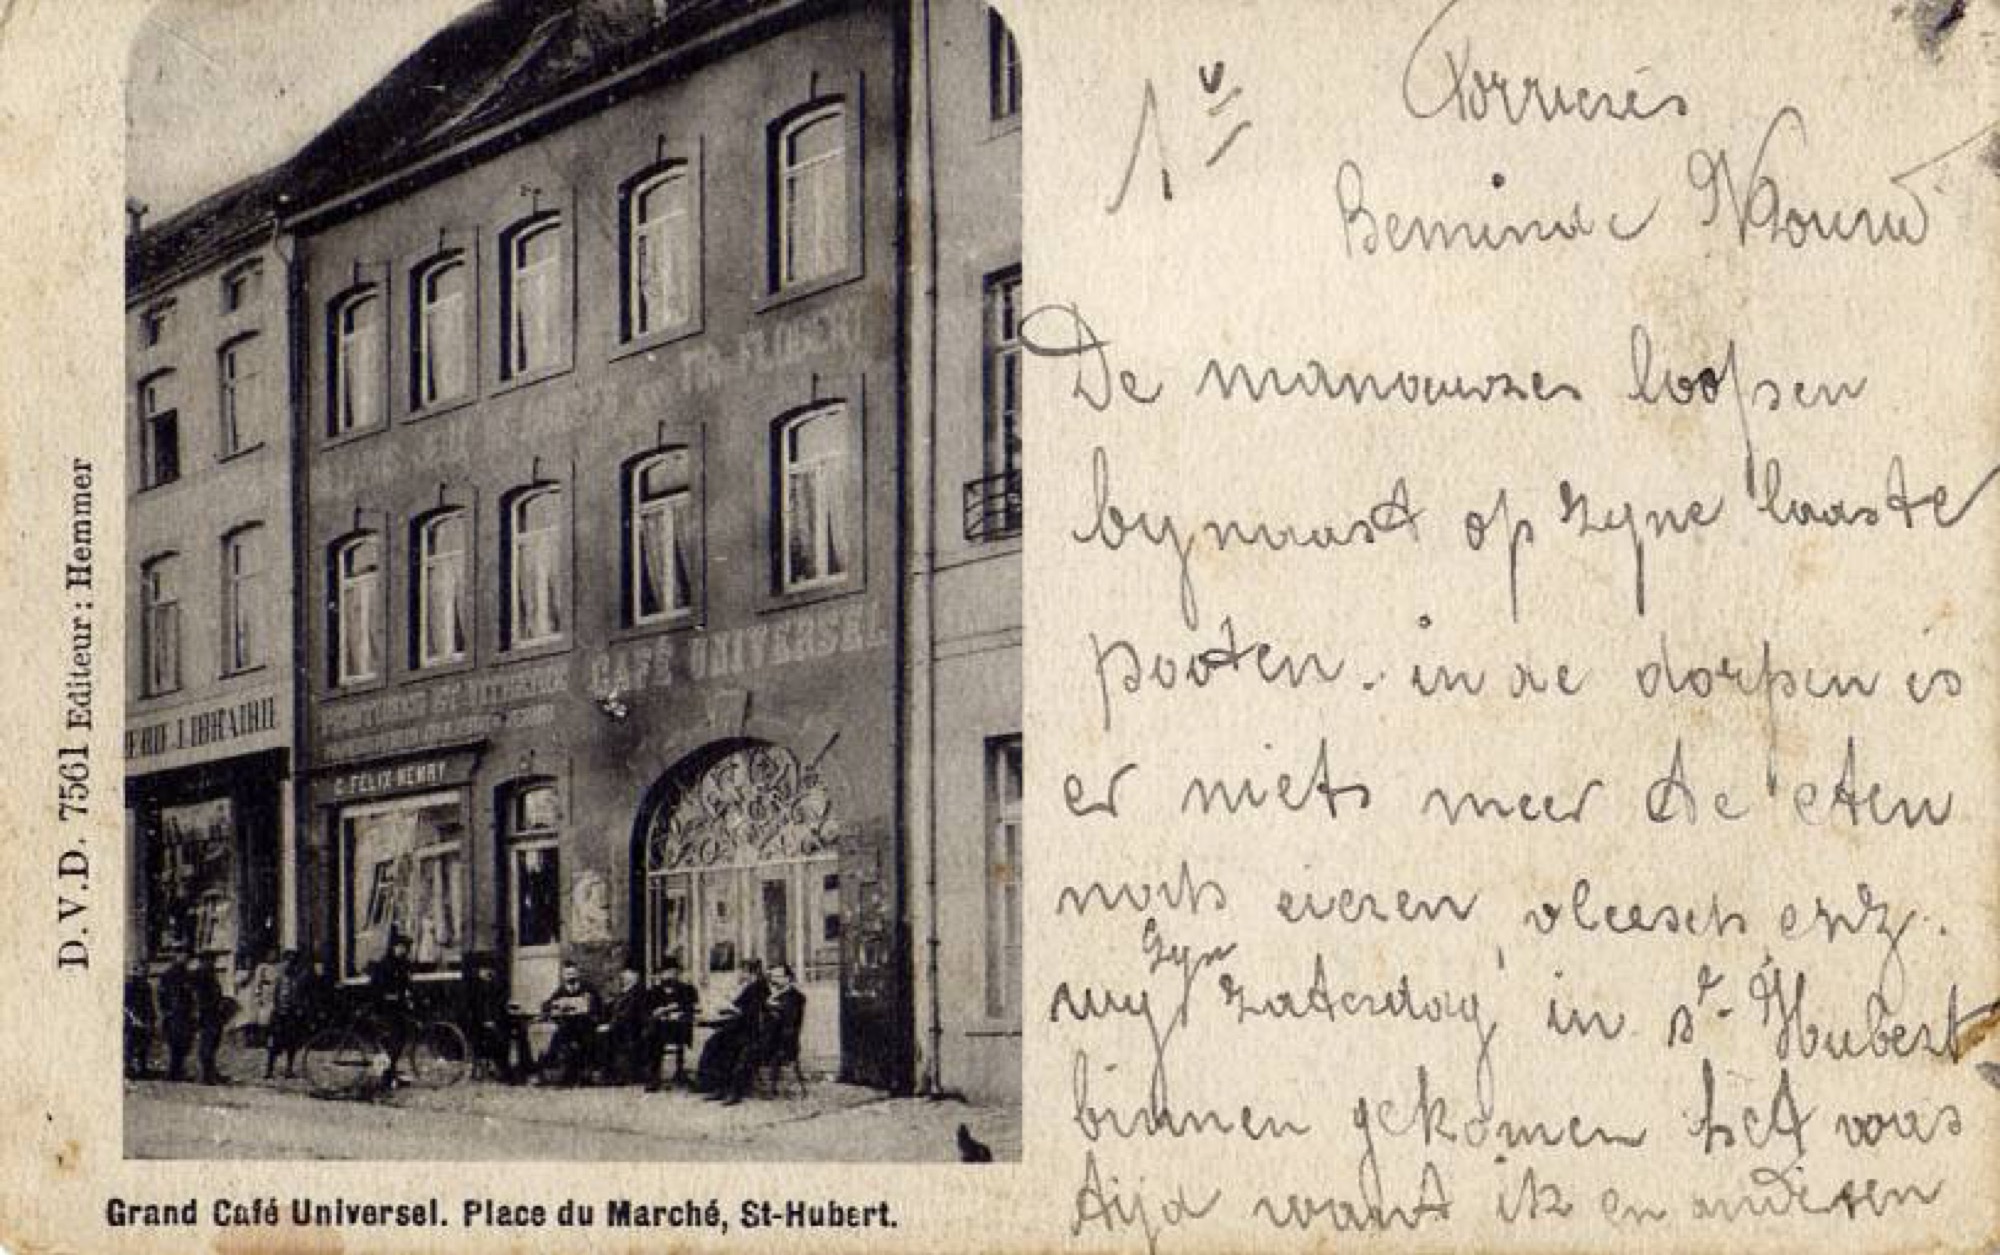 D.V.D. 7561 Editeur: Hemmer
CAFÉ UNIVERSEL
LIBRAIRIE
C. FELIX-HENRY
Grand Café Universel. Place du Marché, St-Hubert.
1
Beminde
De manouvres loopen
bynaast op zyne laaste
pooten. in de dorpen is
er niets meer te eten
noch eieren, vleesch enz.
zyn
wy zaterdag in St. Hubert
binnen gekomen het was
tijd want ik en anderen